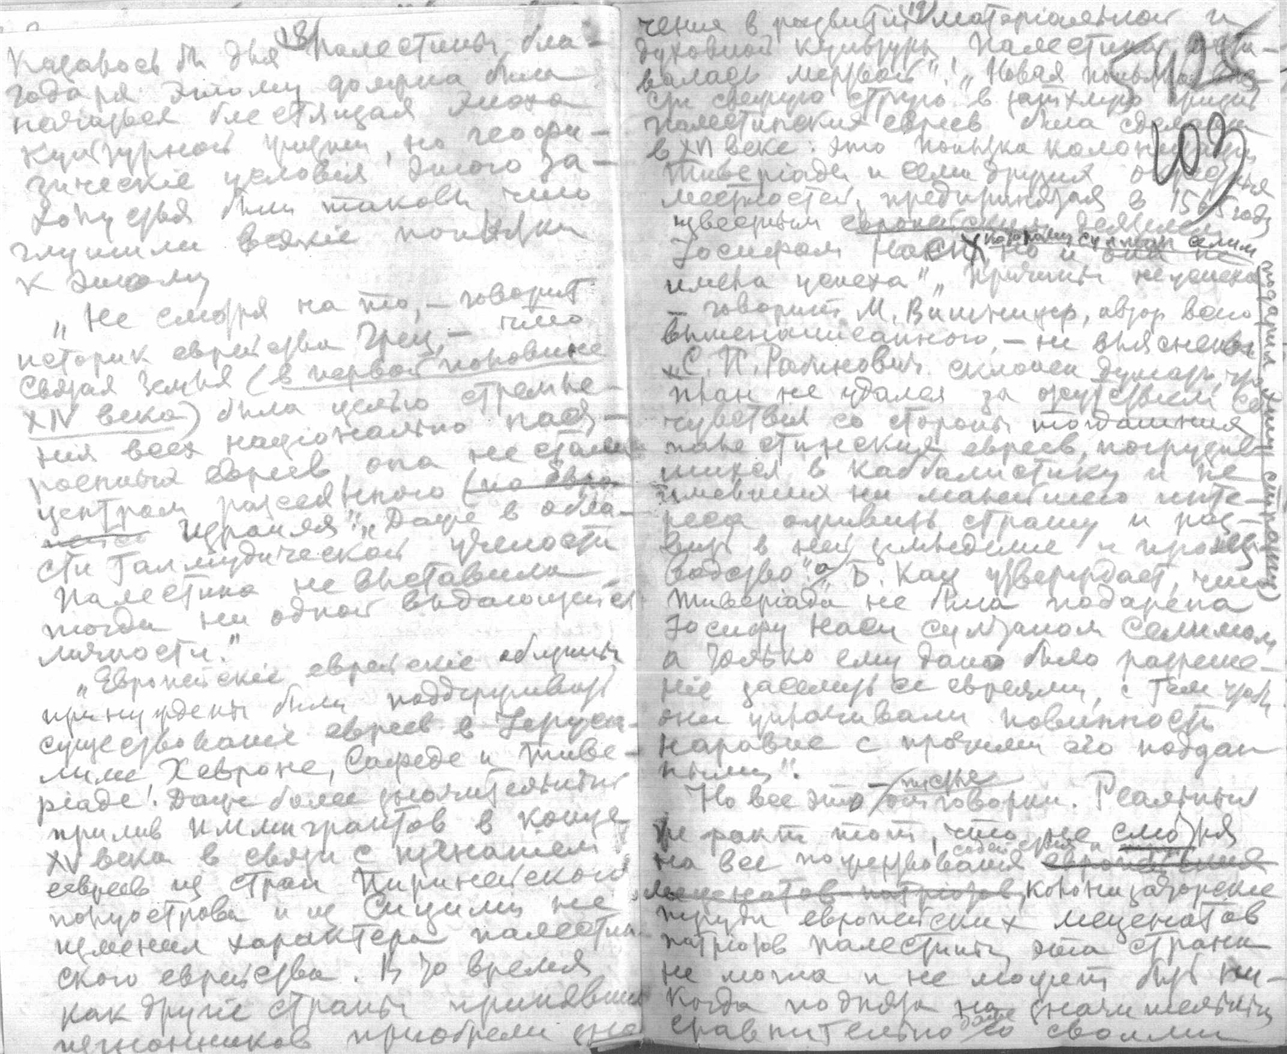 18)
Казалось бы для Палестины бла-
годаря этому должна была
начаться блестящая эпоха
культурной жизни, но геогра-
фическіе условія этого За-
холустья были таковы что
глушили всякіе попытки
к этому
„Не смотря на то, – говорит
историк еврейства Грец, – что
святая земля (в первой половине
XIV века) была целью стремле-
ния всех национально наст-
роенных евреев она не стала
центром рассеянного (по
Израиля". „Даже в обла-
сти Талмудической учености
Палестина не выставила
тогда ни одной выдающейся
личности."
„Европейскіе еврейскіе общины
принуждены были поддерживать
существованіе евреев в Іеруса-
лиме Хевроне, Сафеде и Тиве-
ріаде. Даже более значительный
прилив иммигрантов в конце
XV века в связи с изгнанием
евреев из стран Пиринейского
полуострова и из Сицилии не
изменил характера палестин-
ского еврейства. В то время
как другіе страны принявшіе
изгнанников приобрели зна-
19)
чения в развитіи матеріальной и
духовной культуры Палестина оста-
валась мертвой".! „Новая попытка
свежую струю в затхлую жизнь
палестинских евреев была сделана
в XVI веке: это попытка колонизаціи
Тиверіады и семи других окрестных
местностей, предпринятая в 1565 году
известным европейским деятелем
Іосифом Наси X но и она не
имела успеха" „Причины неуспеха
говорит М. Вишницер, автор всего
вышеписанного, – не выяснены
С. П. Рабинович склонен думать, что
план не удался за отсутствіем со-
чувствія со стороны тогдашних
палестинских евреев, погрузив-
шихся в каббалистику и не
имевших ни малейшего инте-
реса оживить страну и раз-
вить в ней земледелие и произ-
водство" а „Б. Кац утверждает, что
Тиверіада не была подарена
Іосифу Наси султаном Селимом
а только ему дано было разреше-
ніе заселить ее евреями, с тем чтобы
они уплачивали повинность
наравне с прочими его поддан
ными".
Но все это – отговорки. Реальный
же факт тот, что не смотря
на все пожертвования европейских
меценатов патріотов, колонизаторскіе
труды европейских меценатов
патріотов палестины эта страна
не могла и не может быть ни-
когда поднята на значительную
сравнительно со своими
5925
103
которому султан Селим
подарил эти страны)